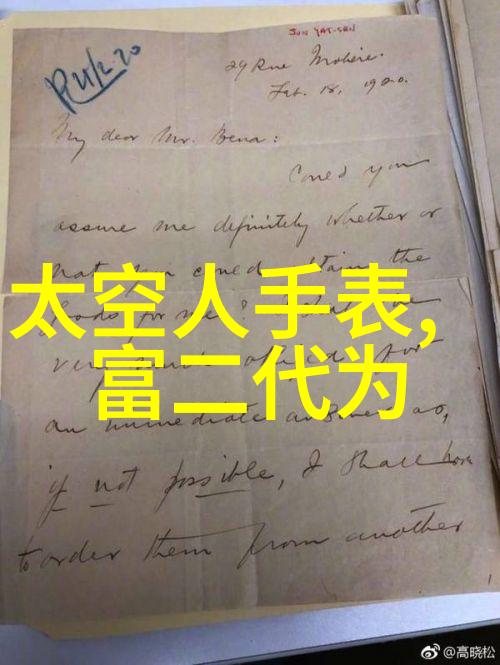 SUN YAT-SEN
R 21/2.20
29 Rue Molière.
Feb. 18, 1920.
My dear Mr. Bena:
Could you
assure me definitely whether or
not you could obtain the
goods for me?
太空人手表,
very
富二代为
an immediate answer as,
if not possible, I shall have
to order them from another
@高晓松